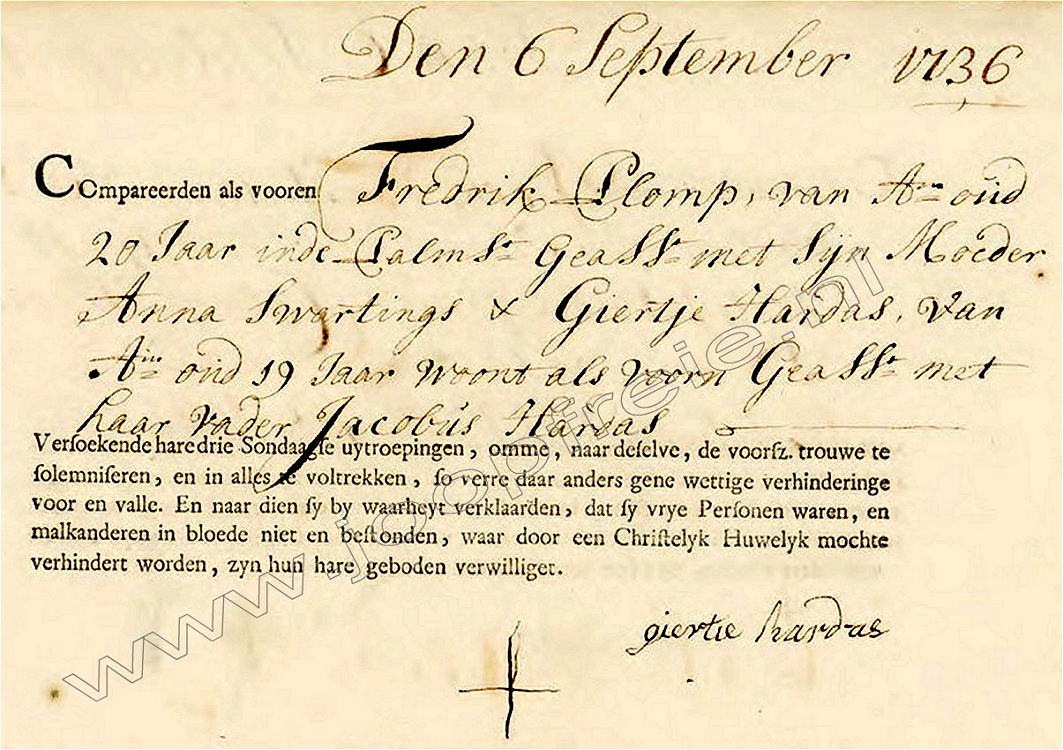 Den 6 September 1736
COmpareerden als vooren Fredrik Plomp, van Am oud
20 Jaar inde Palmstr Geasstr met Syn Moeder
Anna Swartings & Giertje Hardas, van
Am oud 19 Jaar woont als voorn Geasstr met
haar vader Jacobus Hardas
Versoekende hare drie Sondaagse uytroepingen, omme, naar deselve, de voorsz. trouwe te
solemniseren, en in alles te voltrekken, so verre daar anders gene wettige verhinderinge
voor en valle. En naar dien sy by waarheyt verklaarden, dat sy vrye Personen waren, en
malkanderen in bloede niet en bestonden, waar door een Christelyk Huwelyk mochte
verhindert worden, zyn hun hare geboden verwilliget.
giertie hardas
www.joopfreie.nl